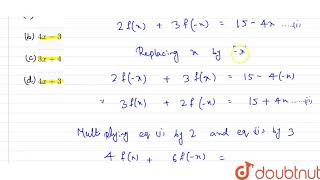 2f(x) + 3f(-x) = 15 - 4x ....(i)
(b) 4x - 3
Replacing x by -x
(c) 3x + 4
(d) 4x + 3
2f(-x) + 3f(x) = 15 - 4(-x)
3f(x) + 2f(-x) = 15 + 4x ......(ii)
Multiplying eq (i) by 2 and eq (ii) by 3
4f(x) + 6f(-x) =
doubtnut